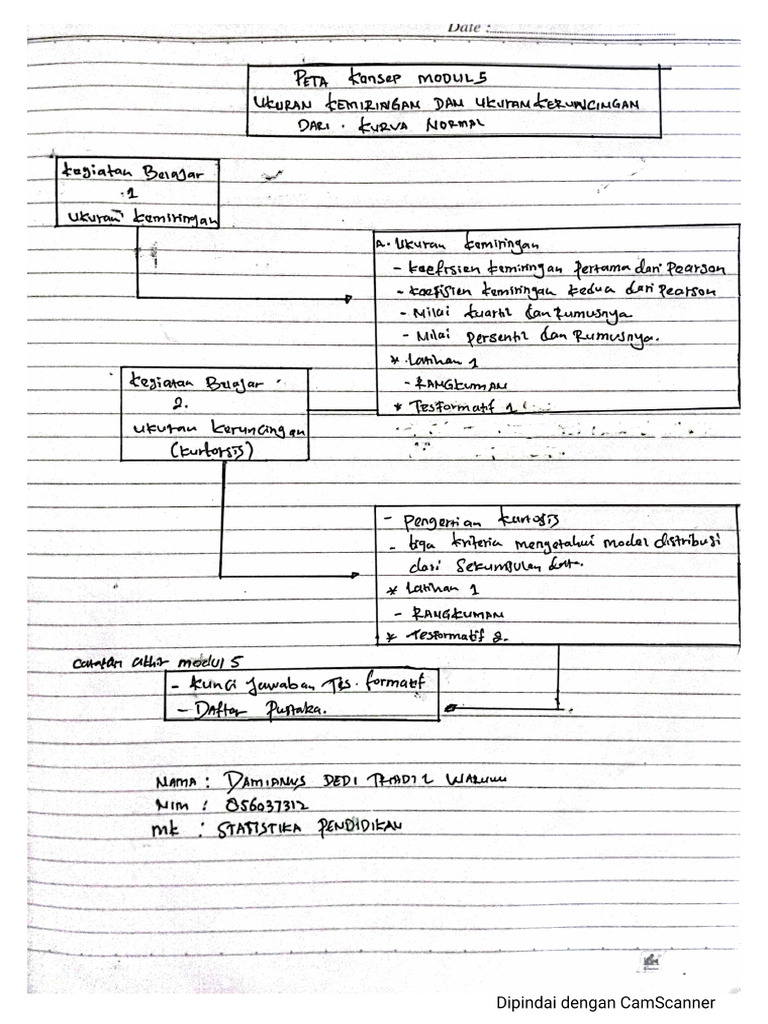 Date :
PETA Konsep MODUL 5
UKURAN KEMIRINGAN DAN UKURAN KERUNCINGAN
DARI . KURVA NORMAL
Kegiatan Belajar
1
Ukuran Kemiringan
A. Ukuran Kemiringan
- Koefisien Kemiringan Pertama dari Pearson
- Koefisien Kemiringan Kedua dari Pearson
- Nilai Kuartil dan Rumusnya
- Nilai Persentil dan Rumusnya.
* Latihan 1
- RANGKUMAN
* Tesformatif 1
Kegiatan Belajar
2.
Ukuran Keruncingan
(Kurtorsis)
- Pengertian Kurtosis
- tiga kriteria mengetahui model distribusi
dari Sekumpulan data.
* Latihan 1
- RANGKUMAN
* Tesformatif 2.
Catatan akhir modul 5
- Kunci Jawaban Tes. formatif
- Daftar Pustaka.
NAMA : DAMIANUS DEDI
NIM : 856037312
MK : STATISTIKA PENDIDIKAN
Dipindai dengan CamScanner